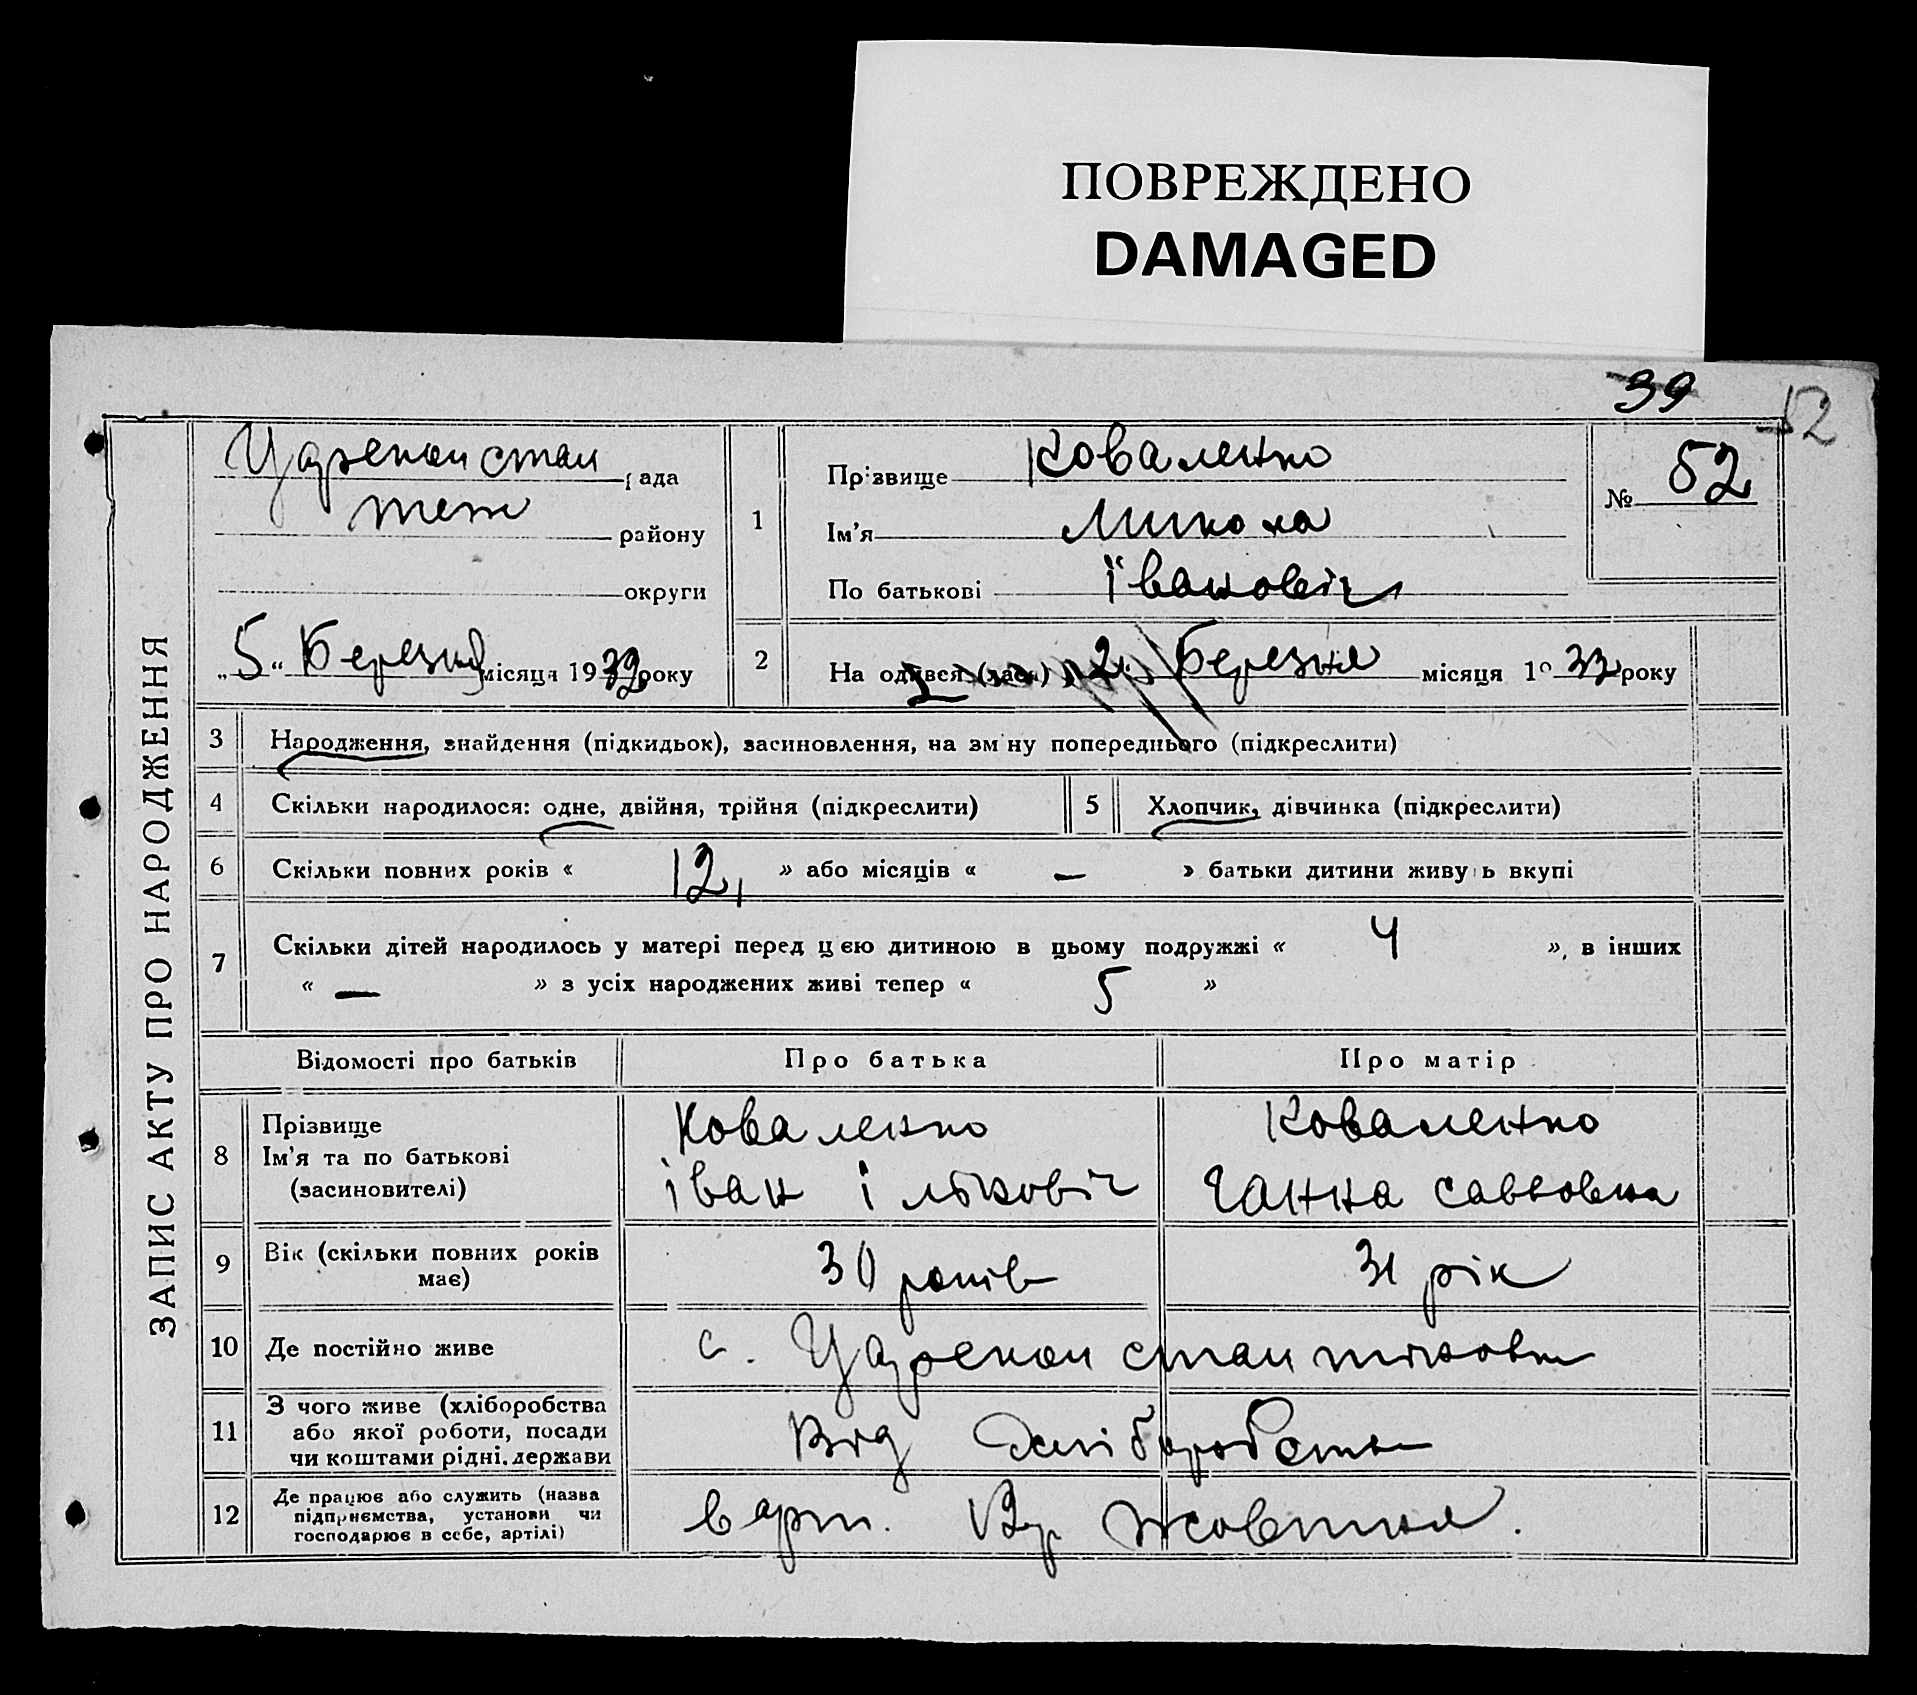 ПОВРЕЖДЕНО
DAMAGED
39
52
ЗАПИС АКТУ ПРО НАРОДЖЕННЯ
рада
району
округи
„5“ Березня місяця 1933 року
1
Прізвище Коваленко
Ім'я Микола
По батькові Івановіч
№ 52
2
На одився (лася) 2 Березня місяця 19 33 року
3 Народження, знайдення (підкидьок), засиновлення, на зм ну попереднього (підкреслити)
4 Скільки народилося: одне, двійня, трійня (підкреслити)
5 Хлопчик, дівчинка (підкреслити)
6 Скільки повних років « 12, » або місяців « — » батьки дитини живуть вкупі
7 Скільки дітей народилось у матері перед цією дитиною в цьому подружжі « 4 », в інших
« — » з усіх народжених живі тепер « 5 »
Відомості про батьків Про батька Про матір
8 Прізвище
Ім'я та по батькові
(засиновителі)
Коваленко
Іван Ільковіч
Коваленко
Ганна Саввовна
9 Вік (скільки повних років
має)
30 років 31 рік
10 Де постійно живе с. Цареконстантіновк
11 З чого живе (хліборобства
або якої роботи, посади
чи коштами рідні, держави
Від хліборобства
12 Де працює або служить (назва
підприємства, установи чи
господарює в себе, артілі)
в арт. Жовтня.